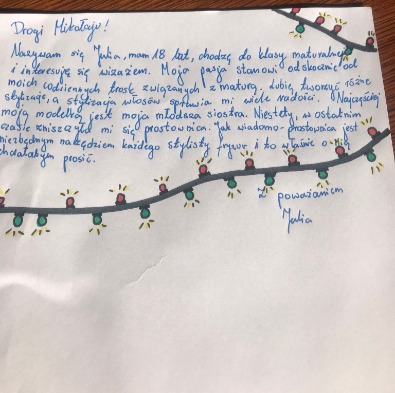 Drogi Mikołaju!
Nazywam się Julia, mam 18 lat, chodzę do klasy maturalnej
i interesuję się wizażem. Moja pasja stanowi odskocznię od
moich codziennych trosk związanych z maturą. Lubię tworzyć różne
stylizacje, a stylizacja włosów sprawia mi wiele radości. Najczęściej
moją modelką jest moja młodsza siostra. Niestety, w ostatnim
czasie zniszczyła mi się prostownica. Jak wiadomo - prostownica jest
niezbędnym narzędziem każdego stylisty fryzur i to właśnie o nią
chciałabym prosić.
Z poważaniem
Julia